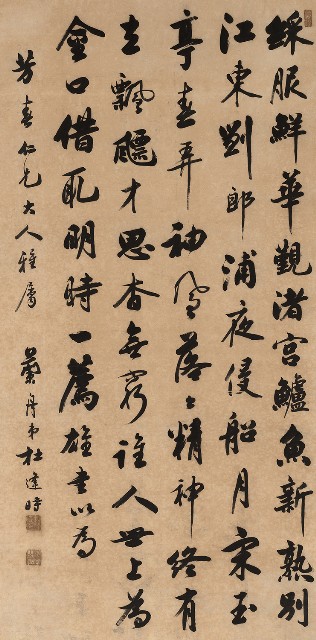 綵服鮮華覲渚宮鱸魚新熟別
江東劉郎浦夜侵船月宋玉
亭春弄袖風落〻精神終有
立飄飃才思杳無窮誰人世上為
金口借取明時一薦雄書以為
芳春仁兄大人雅屬 弟杜